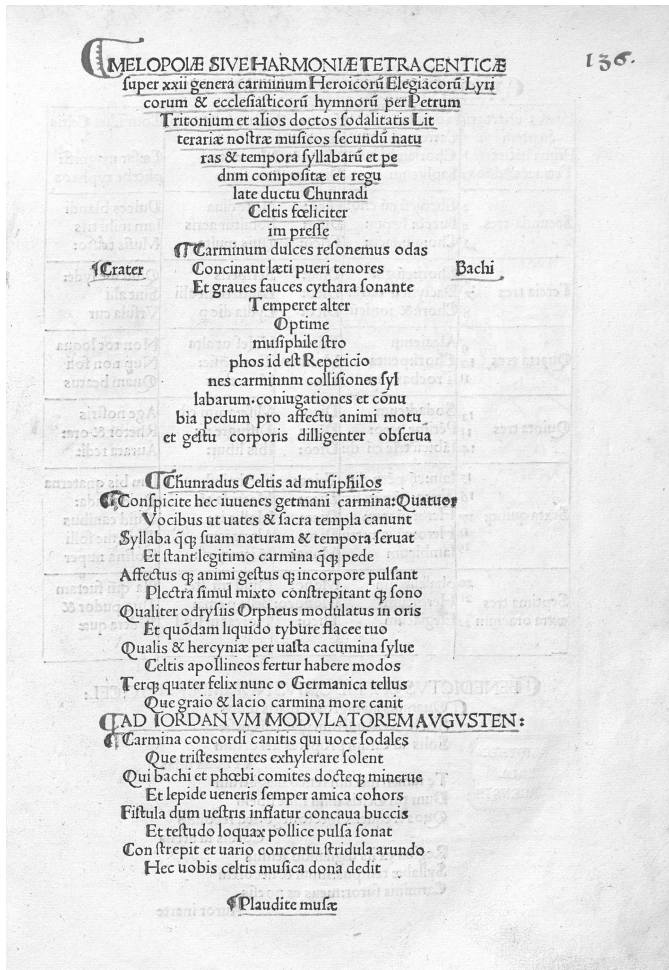 136.
MELOPOIÆ SIVE HARMONIÆ TETRACENTICÆ
super xxii genera carminum Heroicorū Elegiacorū Lyri
corum & ecclesiasticorū hymnorū per Petrum
Tritonium et alios doctos sodalitatis Lit
terariæ nostræ musicos secundū natu
ras & tempora syllabarū et pe
dnm compositæ et regu
late ductu Chunradi
Celtis fœliciter
im presse
¶ Carminum dulces resonemus odas
¶ Crater Concinant læti pueri tenores Bachi
Et graues fauces cythara sonante
Temperet alter
Optime
musiphile stro
phos id est Repeticio
nes carminnm collisiones syl
labarum.coniugationes et cōnu
bia pedum pro affectu animi motu
et gestu corporis dilligenter obserua
Chunradus Celtis ad musiphilos
¶ Conspicite hec iuuenes germani carmina: Quatuor
Vocibus ut uates & sacra templa canunt
Syllaba q̄q; suam naturam & tempora seruat
Et stant legitimo carmina q̄q; pede
Affectus q; animi gestus q; incorpore pulsant
Plectra simul mixto constrepitant q; sono
Qualiter odrysiis Orpheus modulatus in oris
Et quōdam liquido tybure flacce tuo
Qualis & hercyniæ per uasta cacumina sylue
Celtis apollineos fertur habere modos
Terq; quater felix nunc o Germanica tellus
Que graio & lacio carmina more canit
AD IORDANVM MODVLATOREM AVGVSTEN:
¶ Carmina concordi canitis qui uoce sodales
Que tristesmentes exhylerare solent
Qui bachi et phœbi comites docteq; minerue
Et lepide ueneris semper amica cohors
Fistula dum uestris inflatur concaua buccis
Et testudo loquax pollice pulsa sonat
Con strepit et uario concentu stridula arundo
Hec uobis celtis musica dona dedit
¶ Plaudite musæ